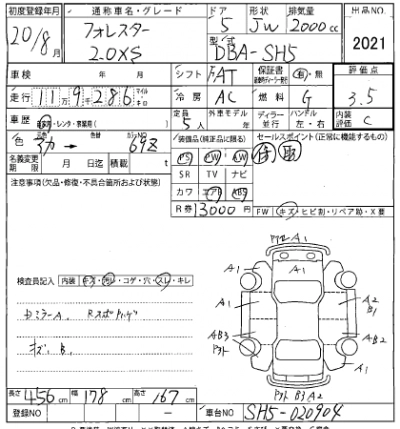 初度登録年月 通称車名・グレード ドア 形状 排気量 出品NO.
20/8月 フォレスター 5 Jw 2000cc
2.0XS 型式 DBA-SH5 2021
車検 年 月 シフト FAT 保証書 有・無 評価点
走行 11万9千286 冷房 AC 燃料 G 3.5
車歴 自家用・レンタ・営業用( ) 定員 5人 外車モデル 年 ディーラー 並行 ハンドル 左・右 内装評価 C
色 → 色替 カラーNO 69Z 装備品(純正品に限る) セールスポイント(正常に機能するもの)
名義変更期限 月 日迄 積載 t PS PW AW
SR TV ナビ
注意事項(欠品・修復・不具合箇所および状態) カワ エアB ABS
R券 13000円 FW (キズ・ヒビ割・リペア跡・X要
A1
A1 A1
A1 A2
B1
検査員記入 内装 キズ・汚レ・コゲ・穴・スレ・キレ
AB3 AB2
A1
キズ、B.
B3 A2
長さ 456cm 幅 178cm 高さ 167cm
登録NO - 車台NO SH5-020904